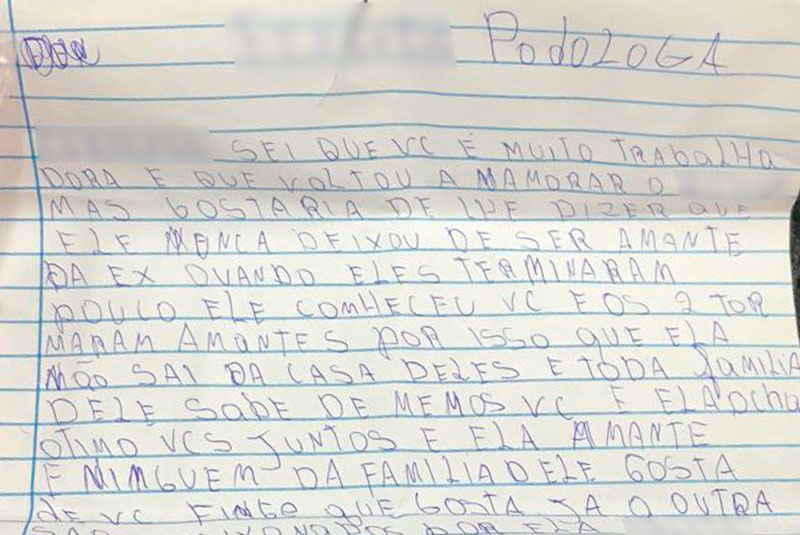 PodoLOGA
SEI QUE VC É MUITO TRABALHA
DORA E QUE VOLTOU A MAMORAR O
MAS GOSTARIA DE LHE DIZER QUE
ELE NUNCA DEIXOU DE SER AMANTE
DA EX QUANDO ELES TERMINARAM
POUCO ELE COMHECEU VC E OS 2 TOR
MARAM AMANTES POR ISSO QUE ELA
MÃO SAI DA CASA DELES E TODA FAMILIA
DELE SABE DE MEMOS VC E ELA ACHA
OTIMO VCS JUNTOS E ELA AMANTE
E MIMGUEM DA FAMILIA DELE GOSTA
de VC FINGE QUE GOSTA JA A OUTRA
POR ELA